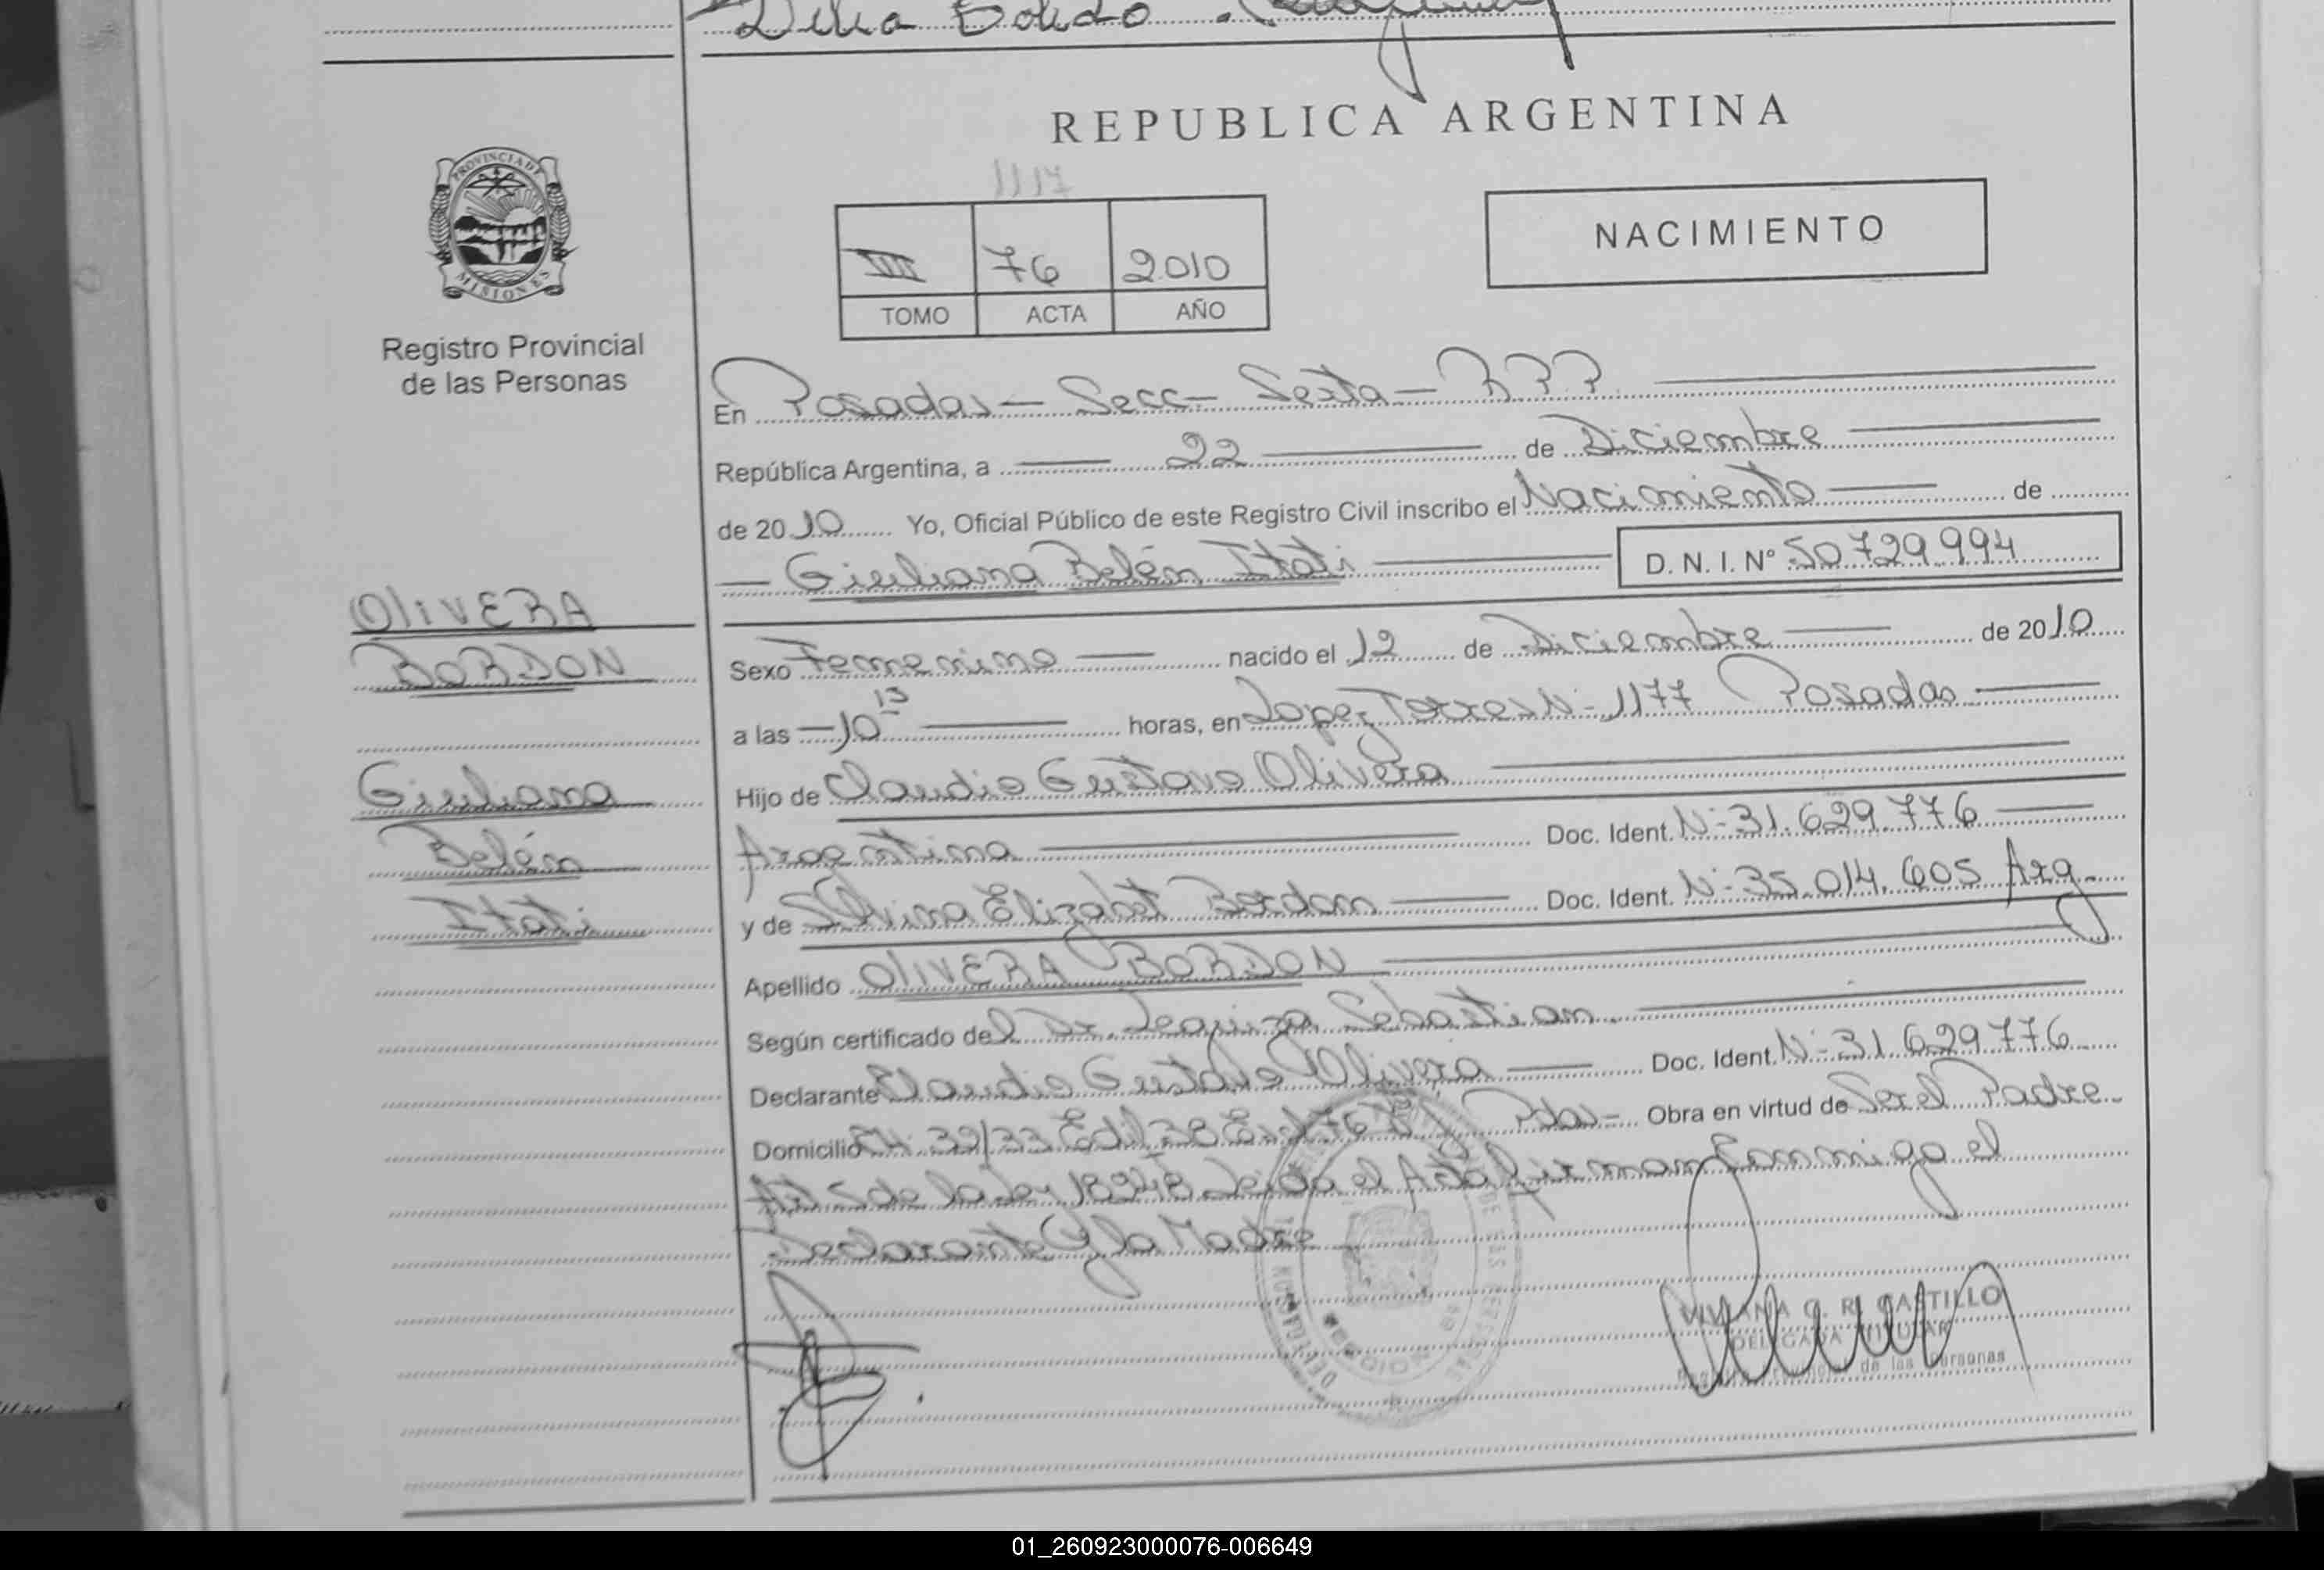 Delia Bolido
REPUBLICA ARGENTINA
PROVINCIA DE
MISIONES
Registro Provincial
de las Personas
1117
NACIMIENTO
VII 76 2010
TOMO ACTA AÑO
En Posadas - Secc - Sexta - R P P
República Argentina, a 22 de Diciembre
de 2010 Yo, Oficial Público de este Registro Civil inscribo el Nacimiento de
Giuliana Belén Itati D. N. I. Nº 50 729 994
OlivERA
BORDON
Giuliana
Belén
Itati
Sexo Femenino nacido el 12 de Diciembre de 2010
a las 10 15 horas, en Lopez Torres N- 1177 Posadas
Hijo de Claudio Gustavo Olivera
Argentino Doc. Ident. N- 31.629.776
y de Silvina Elizabet Bordon Doc. Ident. N- 35.014.605 Arg
Apellido OlivERA BORDON
Según certificado del Dr. Sebastian
Declarante Claudio Gustavo Olivera Doc. Ident. N- 31 629 776
Domicilio Pdas - Obra en virtud de Ser el Padre
de la Ley Leida el Acta firman conmigo el
Declarante y la Madre
VIVIANA G. R. CASTILLO
DELEGADA TITULAR
Registro Provincial de las Personas
01_260923000076-006649